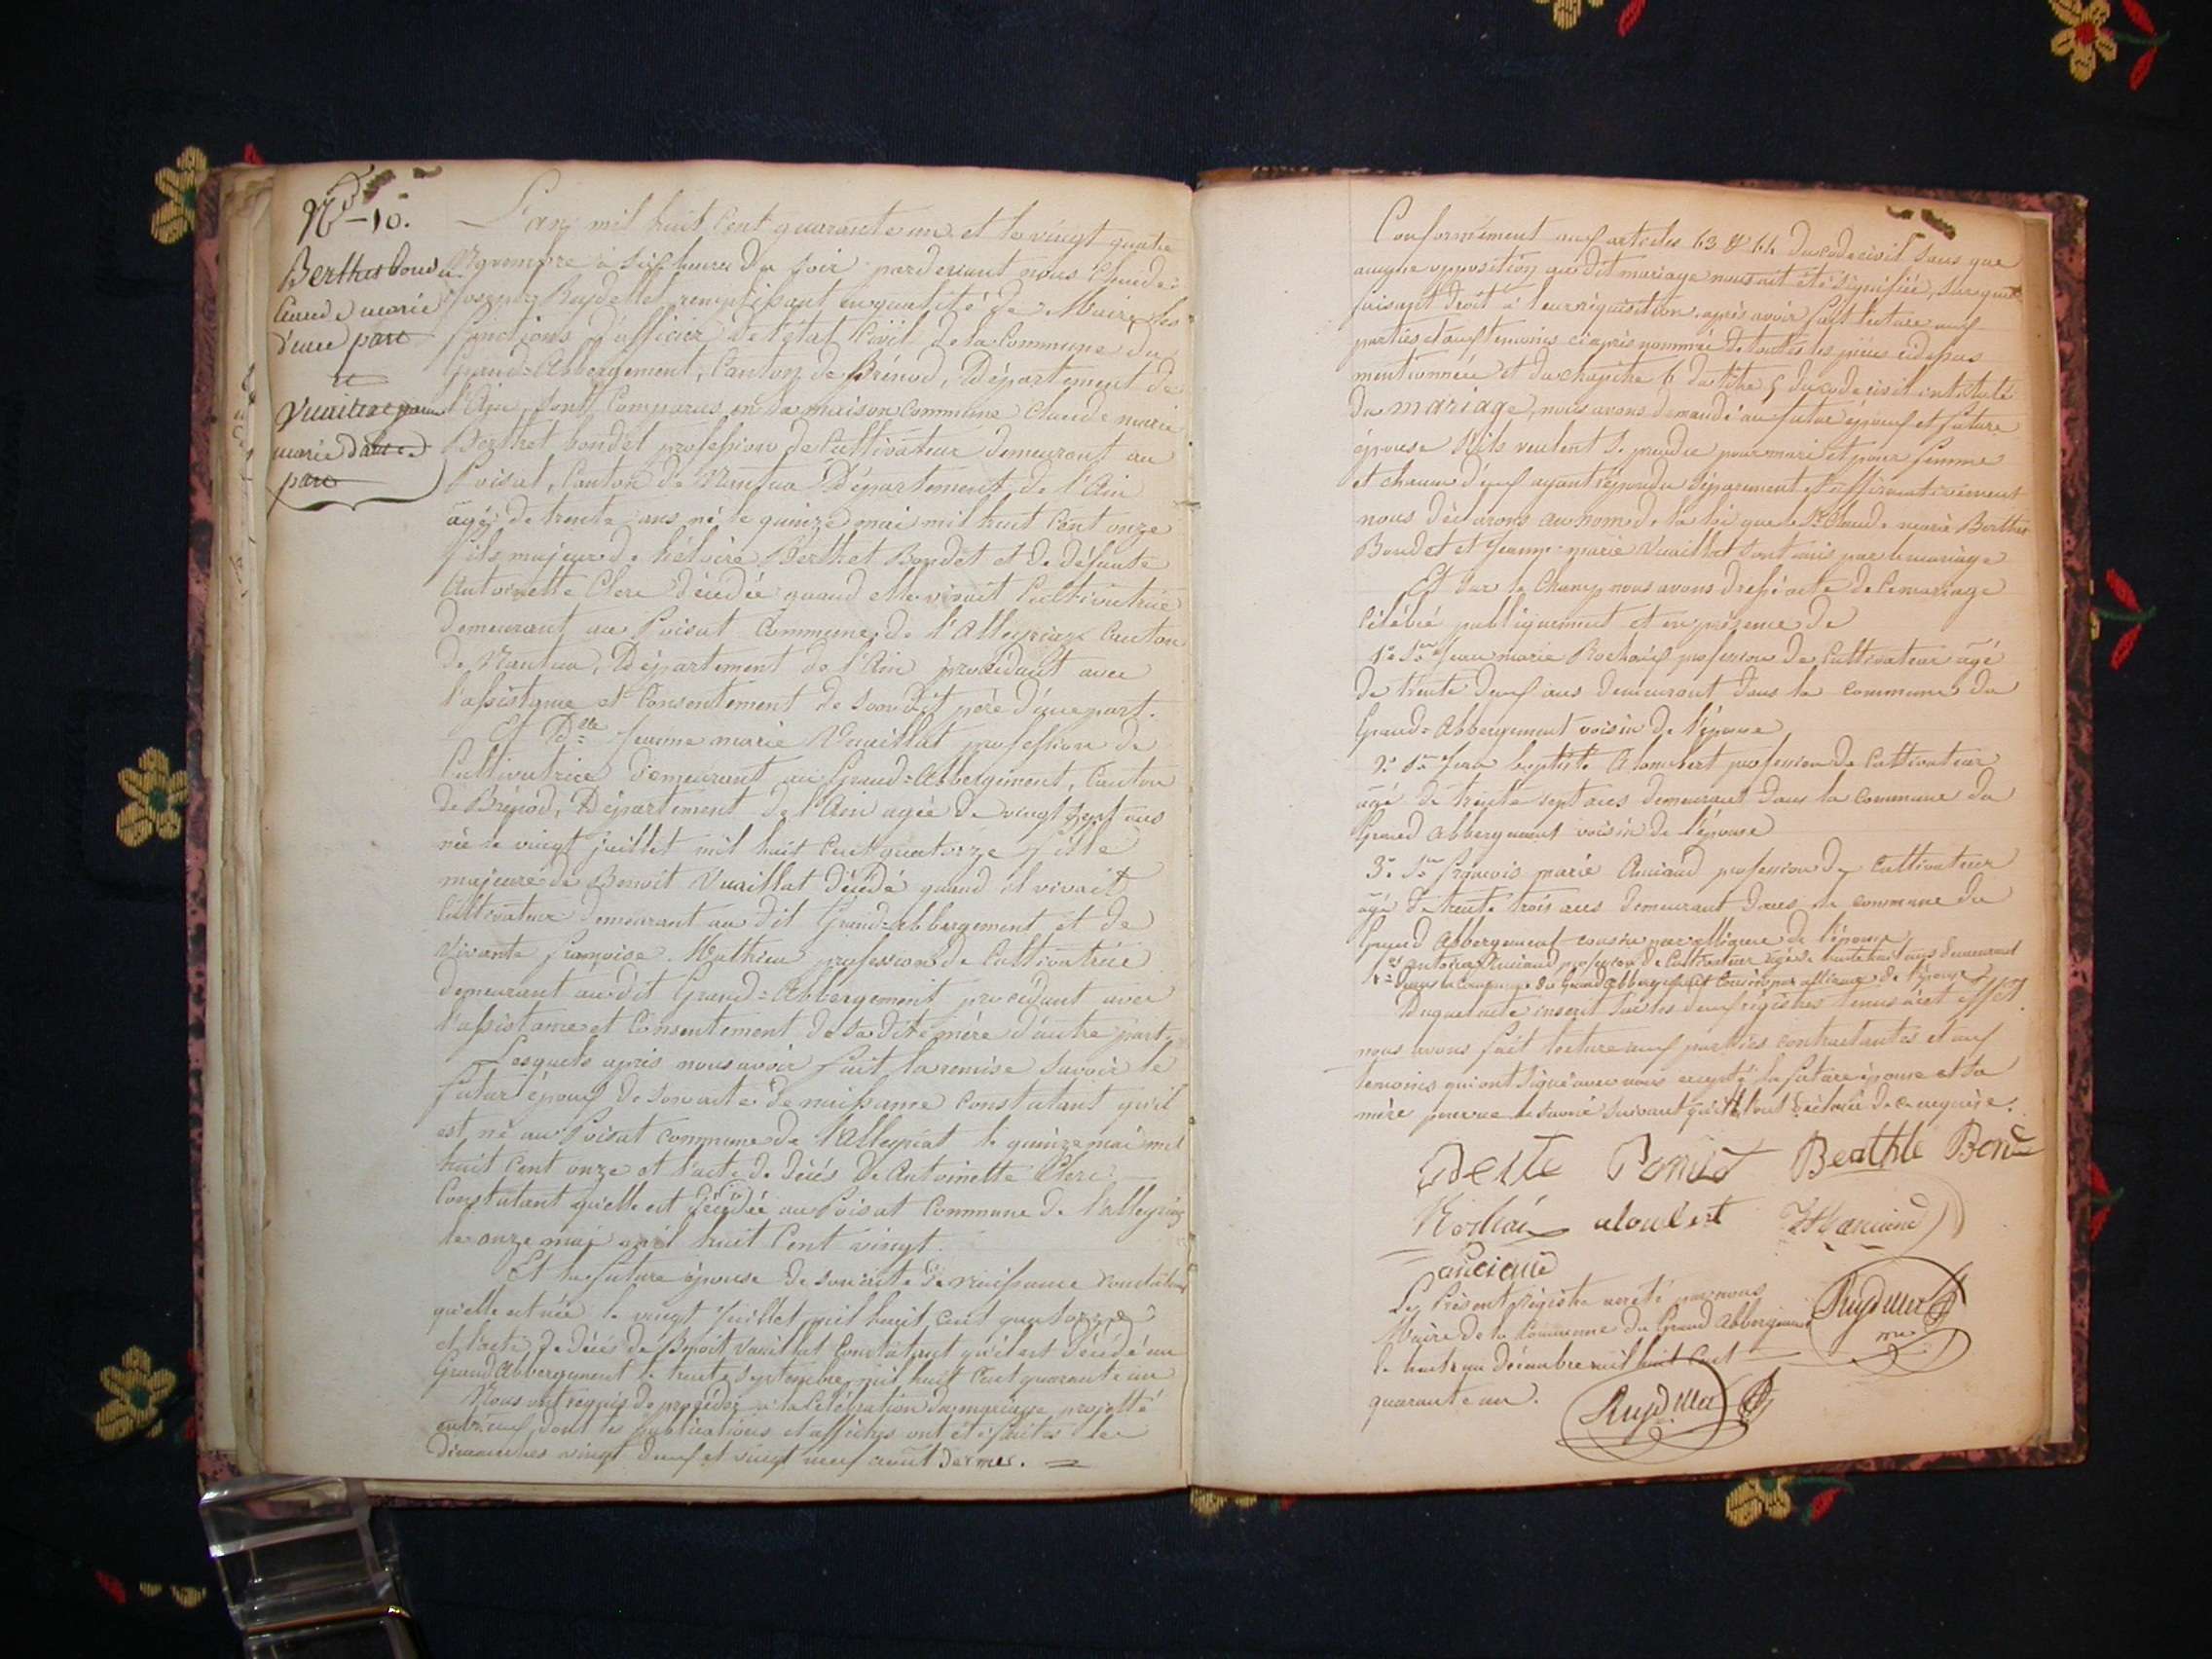 N° 10.
Berthet bondet
Claude marie
d'une part
et
Vuaillat jeanne
marie d'autre
part
L'an mil huit Cent quarante un et le vingt quatre
Novembre à six heures du soir pardevant nous Claude
Joseph Reydellet remplissant en qualité de Maire les
fonctions d'officier de l'état Civil de la Commune du
Grand-Abbergement, Canton de Brénod, Département de
l'Ain, sont Comparus en la maison commune Claude marie
Berthet bondet profession de Cultivateur demeurant au
Poisat, Canton de Nantua Département de l'Ain
agé de trente ans né le quinze mai mil huit Cent onze
fils majeur de Berthet Bondet et de défunte
Antoinette Clerc décédée quand elle vivait Cultivatrice
demeurant au Poisat Commune de l'Alleyriax Canton
de Nantua, Département de l'Ain procédant avec
l'assistance et Consentement de son dit père d'une part.
Et Dlle Jeanne marie Vuaillat profession de
Cultivatrice demeurant au Grand-Abbergement, Canton
de Brénod, Département de l'Ain agée de vingt sept ans
née le vingt juillet mil huit Cent quatorze fille
majeure de Benoit Vuaillat décédé quand il vivait
Cultivateur demeurant au dit Grand-abbergement et de
vivante françoise Mathieu profession de Cultivatrice
demeurant au dit Grand-Abbergement procédant avec
l'assistance et Consentement de sa dite mère d'autre part,
Lesquels après nous avoir fait la remise savoir le
futur époux de son acte de naissance constatant qu'il
est né au Poisat Commune de l'Alleyriat le quinze mai mil
huit Cent onze et l'acte de décés de Antoinette Clerc
Constatant qu'elle est décédée au Poisat Commune de l'alleyriax
le onze mai mil huit Cent vingt.
Et la future épouse de son acte de naissance constatant
qu'elle est née le vingt Juillet mil huit Cent quatorze
et l'acte de décés de Benoit Vuaillat Constatant qu'il est décédé au
Grand Abbergement le trente Septembre mil huit Cent quarante un
Nous ont requis de procéder à la Célébration du mariage projetté
entr'eux dont les publications et affiches ont été faites les
dimanches vingt deux et vingt neuf août dernier.
Conformément aux articles 63 & 64 du code civil sans que
aucune opposition au dit mariage nous ait été signifiée,
faisant droit à leur réquisition, après avoir fait lecture aux
parties et aux témoins ci après nommés de toutes les pièces ci dessus
mentionnées et du chapitre 6 du titre 5 du code civil intitulé
du mariage, nous avons demandé au futur époux et future
épouse s'ils veulent se prendre pour mari et pour femme
et chacun d'eux ayant répondu séparément et affirmativement
nous déclarons au nom de la loi que le Sr Claude marie Berthet
Bondet et Jeanne marie Vuaillat sont unis par le mariage
Et sur le Champ nous avons dressé acte de Ce mariage
Célébré publiquement et en présence de
1° Sr Jean marie Rochaix profession de Cultivateur agé
de trente deux ans demeurant dans la commune du
Grand-Abbergement voisin de l'épouse
2° Sr Jean baptiste Alombert profession de Cultivateur
agé de trente sept ans demeurant dans la commune du
Grand abbergement voisin de l'épouse
3° Sr françois marie Anciand profession de Cultivateur
agé de trente trois ans demeurant dans la commune du
Grand Abbergement cousin par alliance de l'épouse
4° Sr antoine Anciand profession de Cultivateur agé de trente huit ans demeurant
dans la Commune du Grand Abbergement Cousin par alliance de l'épouse
Duquel acte inscrit sur les deux régistres tenus à cet effet
nous avons fait lecture aux parties contractantes et aux
témoins qui ont signé avec nous excepté la future épouse et sa
mère pour ne le savoir suivant qu'elles l'ont déclaré de ce enquise.
Berthle Bond
Rochaix aloubert Anciand
anciand
Le Présent régistre arrêté par nous
Maire de la Commune du Grand Abbergement
le trente un décembre mil huit Cent
quarante un.
Reydellet
Reydellet